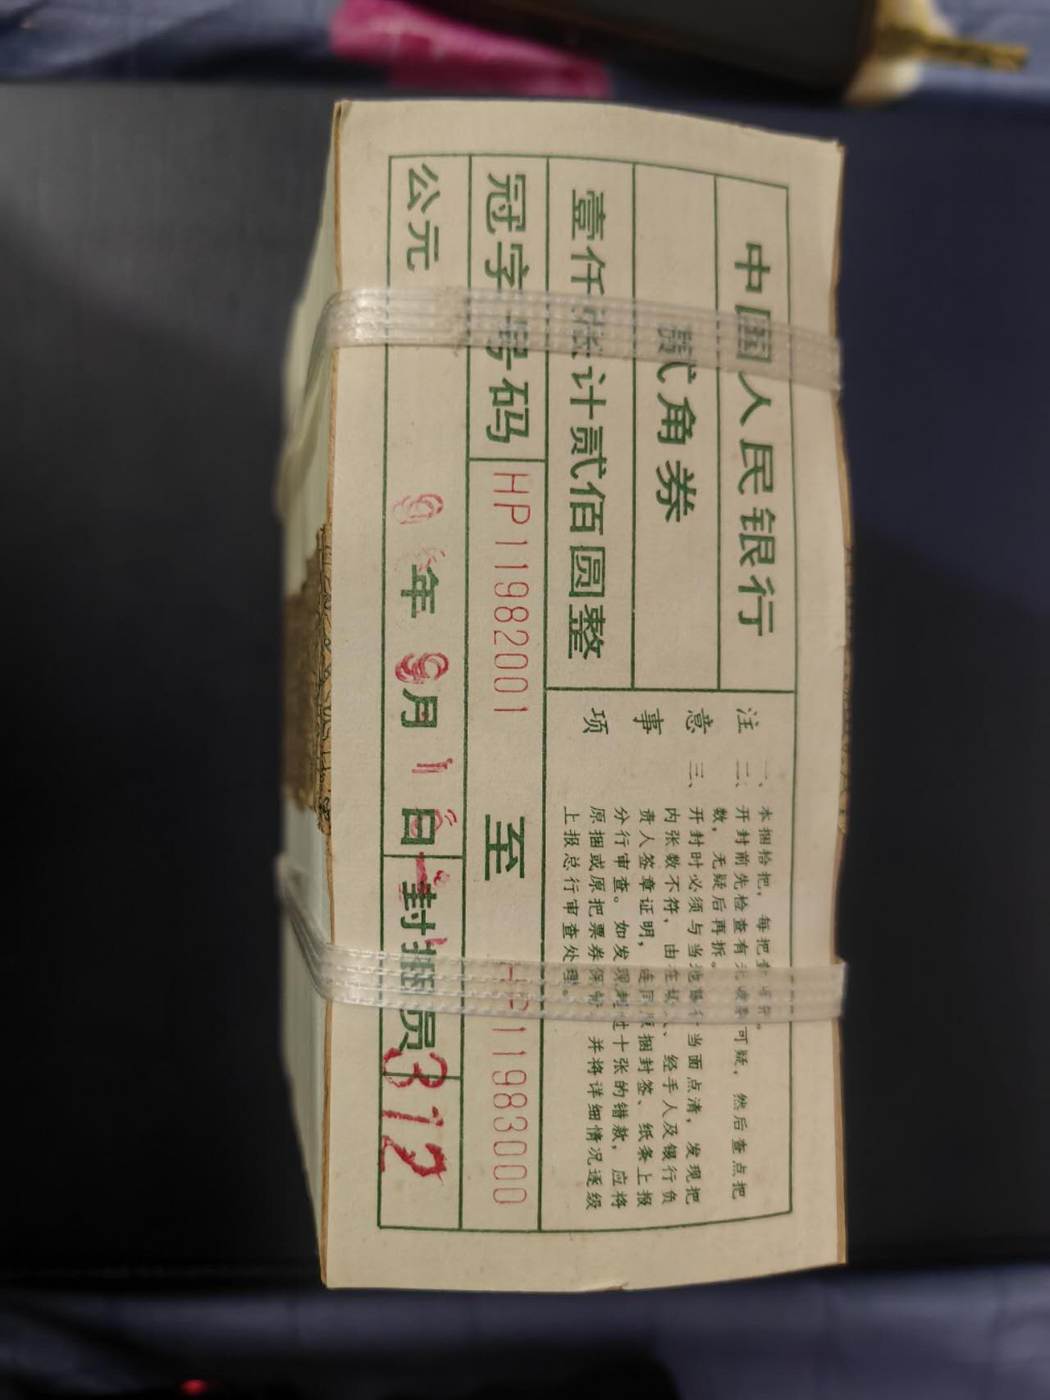 中国人民银行
贰角券
壹仟张计贰佰圆整
冠字号码 HP11982001 至 HP11983000
公元 年 9月1 日 封捆员 312
注意事项
一、本捆拾把，每把
二、开封前先检查有无 可疑，然后查点把
数，无疑后再拆。
三、开封时必须与当 当面点清，发现把
内张数不符，由在 经手人及银行负
责人签章证明，连同 捆封签、纸条上报
分行审查。如发现 过十张的错款，应将
原捆或原把票券保 并将详细情况逐级
上报总行审查处理。